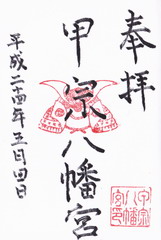 奉拝
甲宗八幡宮
平成二十四年五月四日
甲宗
八幡
宮印